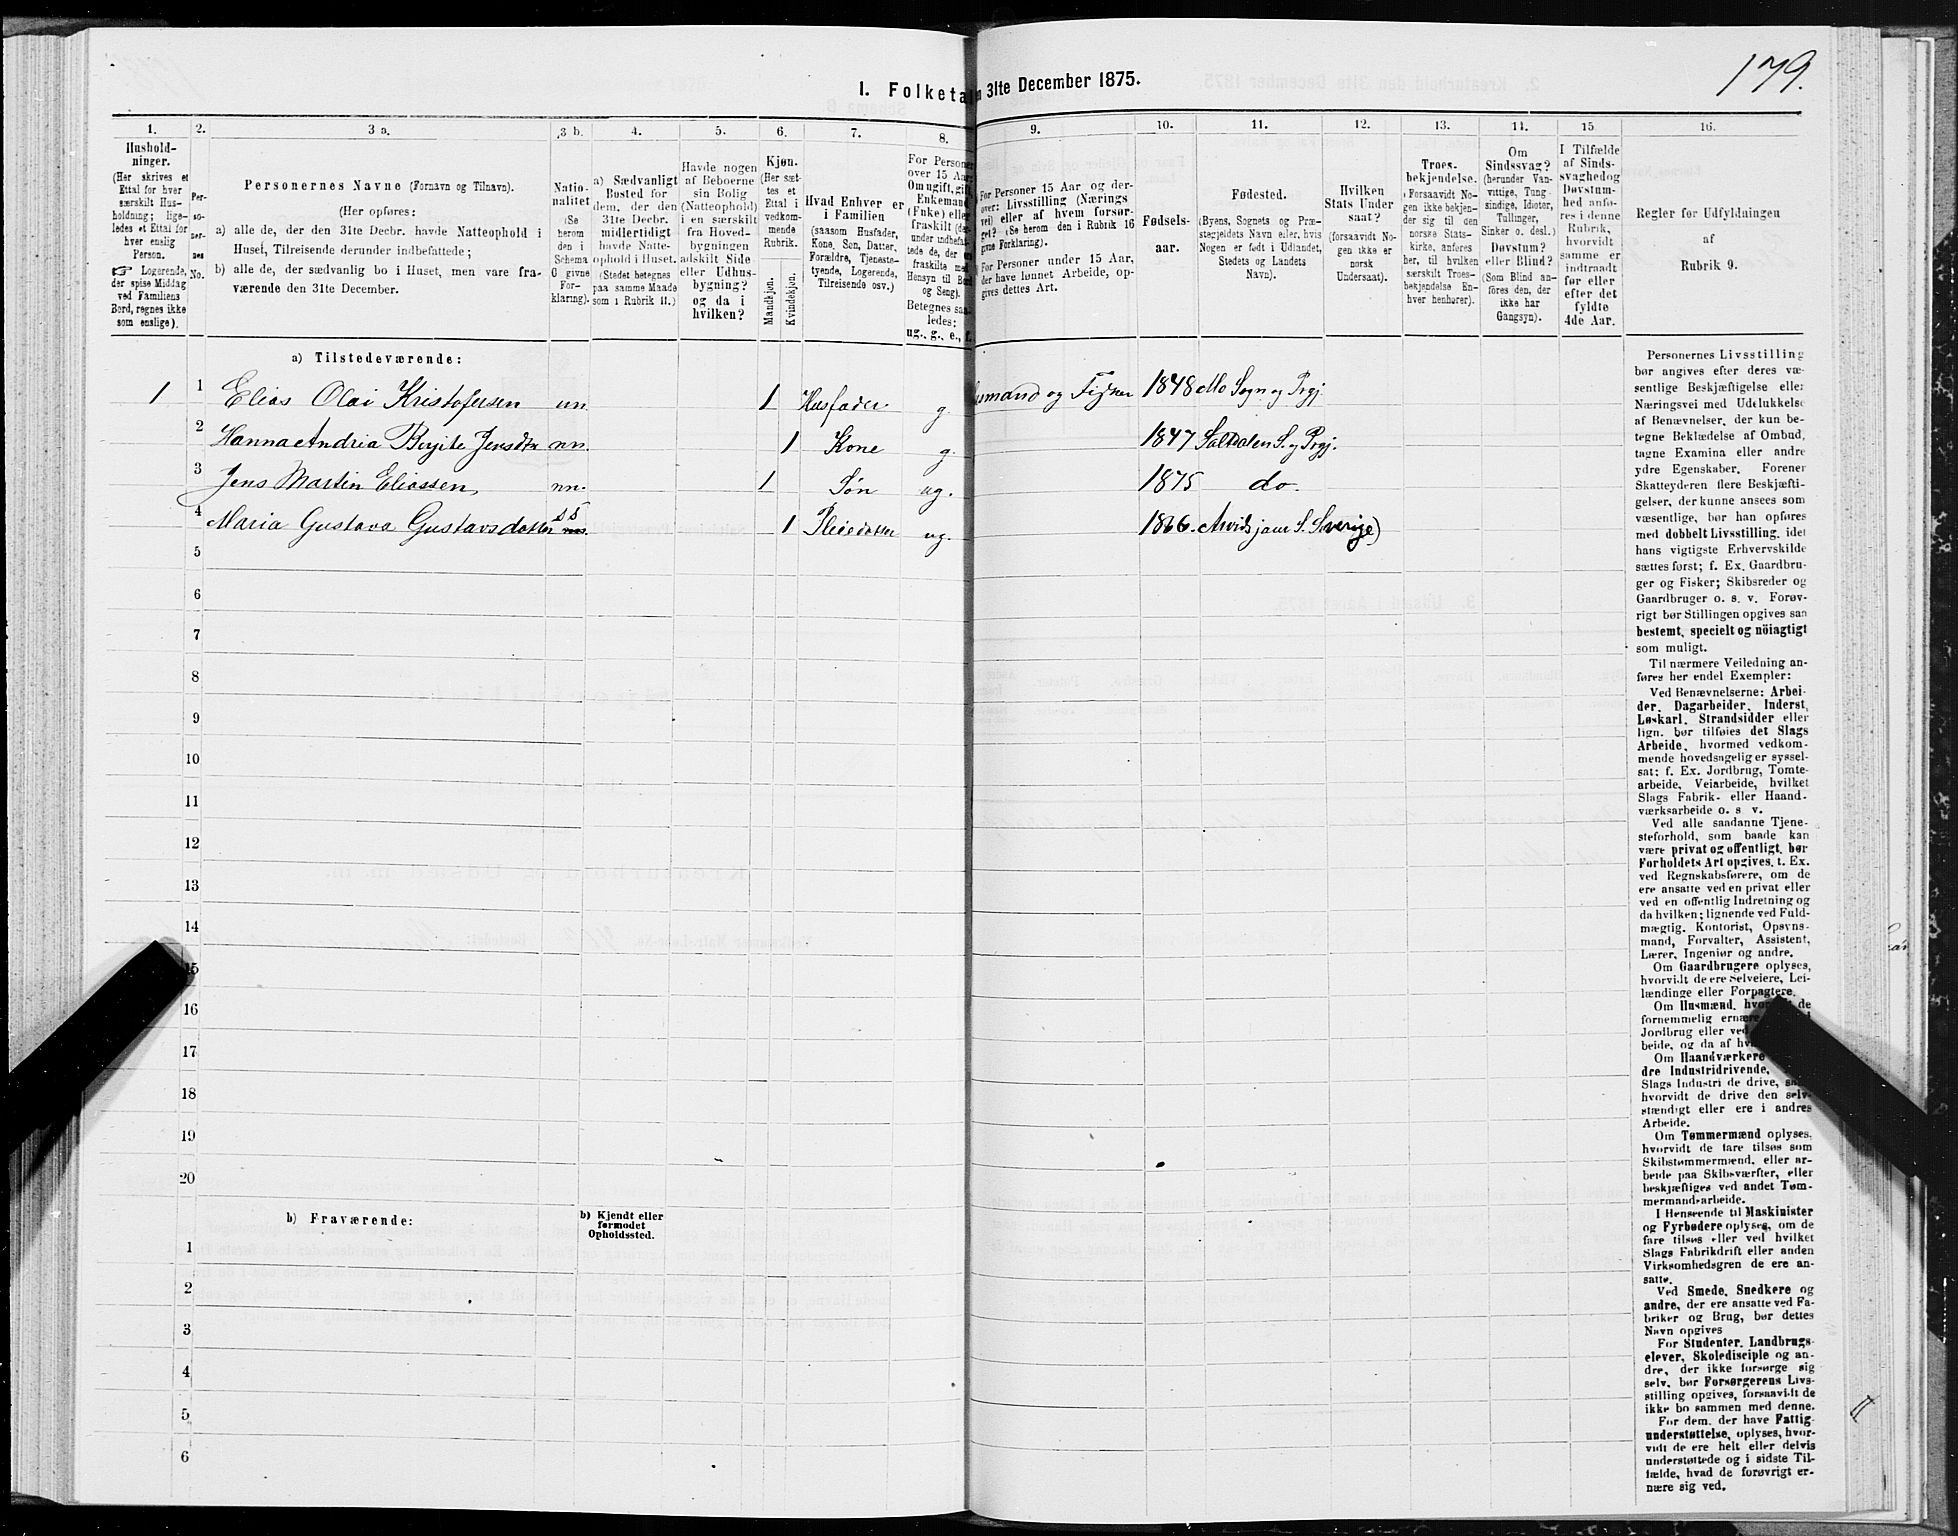 179.
I. Folketal den 31te December 1875.
1. 2. 3 a. 3 b. 4. 5. 6. 7. 8. 9. 10. 11. 12. 13. 14. 15 16.
Hushold-
ninger.
(Her skrives et
Ettal for hver
særskilt Hus-
holdning; lige-
ledes et Ettal for
hver enslig
Person.
☞ Logerende,
der spise Middag
ved Familiens
Bord, regnes ikke
som enslige).
Per-
so-
ner-
nes
No.
Personernes Navne (Fornavn og Tilnavn).
(Her opføres:
a) alle de, der den 31te Decbr. havde Natteophold i
Huset, Tilreisende derunder indbefattede;
b) alle de, der sædvanlig bo i Huset, men vare fra-
værende den 31te December.
Natio-
nalitet
(Se
herom
den i
Schema
G givne
For-
klaring).
a) Sædvanligt
Bosted for
dem, der den
31te Decbr.
midlertidigt
havde Natte-
ophold i Huset.
(Stedet betegnes
paa samme Maade
som i Rubrik 11.)
Havde nogen
af Beboerne
sin Bolig
(Natteophold)
i en særskilt
fra Hoved-
bygningen
adskilt Side
eller Udhus-
bygning?
og da i
hvilken?
Kjøn.
(Her sæt-
tes et
Ettal i
vedkom-
mende
Rubrik.
Mandkjøn.
Kvindekjøn.
Hvad Enhver er
i Familien
(saasom Husfader,
Kone, Søn, Datter,
Forældre, Tjeneste-
tyende, Logerende,
Tilreisende osv.)
For Personer
over 15 Aar:
Om ugift, gift,
Enkemand
(Enke) eller
fraskilt (der-
under indbefat-
tede de, der en
fraskilte med
Hensyn til Bord
og Seng).
Betegnes saa-
ledes:
ug., g., e., f.
For Personer 15 Aar og der-
over: Livsstilling (Nærings
vei) eller af hvem forsør-
get? (Se herom den i Rubrik 16
givne Forklaring).
For Personer under 15 Aar,
der have lønnet Arbeide, op-
gives dettes Art.
Fødsels-
aar.
Fødested.
(Byens, Sognets og Præ-
stegjeldets Navn eller, hvis
Nogen er født i Udlandet,
Stedets og Landets
Navn).
Hvilken
Stats Under
saat?
(forsaavidt No-
gen ikke er
norsk
Undersaat).
Troes-
bekjendelse.
(Forsaavidt No-
gen ikke bekjen-
der sig til den
norske Stats-
kirke, anføres
her, til hvilken
særskilt Troes-
bekjendelse En-
hver henhører).
Om
Sindssvag?
(herunder Van-
vittige, Tung-
sindige, Idioter,
Tullinger,
Sinker o. desl.)
Døvstum?
eller Blind?
(Som Blind an-
føres den, der
ikke har
Gangsyn).
I Tilfælde
af Sinds-
svaghedog
Døvstum-
hed anfø-
res i denne
Rubrik,
hvorvidt
samme er
indtraadt
før eller
efter det
fyldte
4de Aar.
Regler for Udfyldningen
af
Rubrik 9.
a) Tilstedeværende:
1 1 Elias Olai Kristofersen nn. 1 Husfader g. smand og Fisker 1848 Mo Sogn og Prgj.
2 Hanna Andria Birgite Jensdtr nn. 1 Kone g. 1847 Saltdalen S. og Prgj.
3 Jens Martin Eliassen nn. 1 Søn ug. 1875 do.
4 Maria Gustava Gustavsdatter ss 1 Pleiedatter ug. 1866. Arvidsjaur S. Sverige)
5
6
7
8
9
10
11
12
13
14
15
16
17
18
19
20
b) Fraværende:
b) Kjendt eller
formodet
Opholdssted.
1
2
3
4
5
6
Personernes Livsstilling
bør angives efter deres væ-
sentlige Beskjæftigelse eller
Næringsvei med Udelukkelse
af Benævnelser, der kun be-
tegne Beklædelse af Ombud,
tagne Examina eller andre
ydre Egenskaber. Forener
Skatteyderen flere Beskjæfti-
gelser, der kunne ansees som
væsentlige, bør han opføres
med dobbelt Livsstilling, idet
hans vigtigste Erhvervskilde
sættes først; f. Ex. Gaardbru-
ger og Fisker; Skibsreder og
Gaardbruger o. s. v. Forøv-
rigt bør Stillingen opgives saa
bestemt, specielt og nöiagtigt
som muligt.
Til nærmere Veiledning an-
føres her endel Exempler:
Ved Benævnelserne: Arbei-
der, Dagarbeider, Inderst,
Løskarl, Strandsidder eller
lign. bør tilføies det Slags
Arbeide, hvormed vedkom-
mende hovedsagelig er syssel-
sat; f. Ex. Jordbrug, Tomte-
arbeide, Veiarbeide, hvilket
Slags Fabrik- eller Haand-
værksarbeide o. s. v.
Ved alle saadanne Tjene-
steforhold, som baade kan
være privat og offentligt, bør
Forholdets Art opgives, t. Ex.
ved Regnskabsførere, om de
ere ansatte ved en privat eller
ved en offentlig Indretning og
da hvilken; lignende ved Fuld-
mægtig, Kontorist, Opsyns-
mand, Forvalter, Assistent,
Lærer, Ingeniør og andre.
Om Gaardbrugere oplyses,
hvorvidt de ere Selveiere, Lei-
lændinge eller Forpagtere.
Om Husmænd, hvor de
fornemmelig ernære
Jordbrug eller ved
beide, og da af hv
Om Haandværkere
dre Industridrivende,
Slags Industri de drive, sa
hvorvidt de drive den selv-
stændigt eller ere i andres
Arbeide.
Om Tømmermænd oplyses,
hvorvidt de fare tilsøs som
Skibstømmermænd, eller ar-
beide paa Skibsværfter, eller
beskjæftiges ved andet Tøm-
mermandsarbeide.
I Henseende til Maskinister
og Fyrbødere oplyses, om de
fare tilsøs eller ved hvilket
Slags Fabrikdrift eller anden
Virksomhedsgren de ere an-
satte.
Ved Smede, Snedkere og
andre, der ere ansatte ved Fa-
briker og Brug, bør dettes
Navn opgives
For Studenter, Landbrugs-
elever, Skoledisciple og an-
dre, der ikke forsørge sig
selv, bør Forsørgerens Livs-
stilling opgives, forsaavidt de
ikke bo sammen med denne.
For dem, der have Fattig-
understøttelse, oplyses, hvor-
vidt de ere helt eller delvis
understøttede og i sidste Til-
fælde, hvad de forøvrigt er-
nære sig ved.